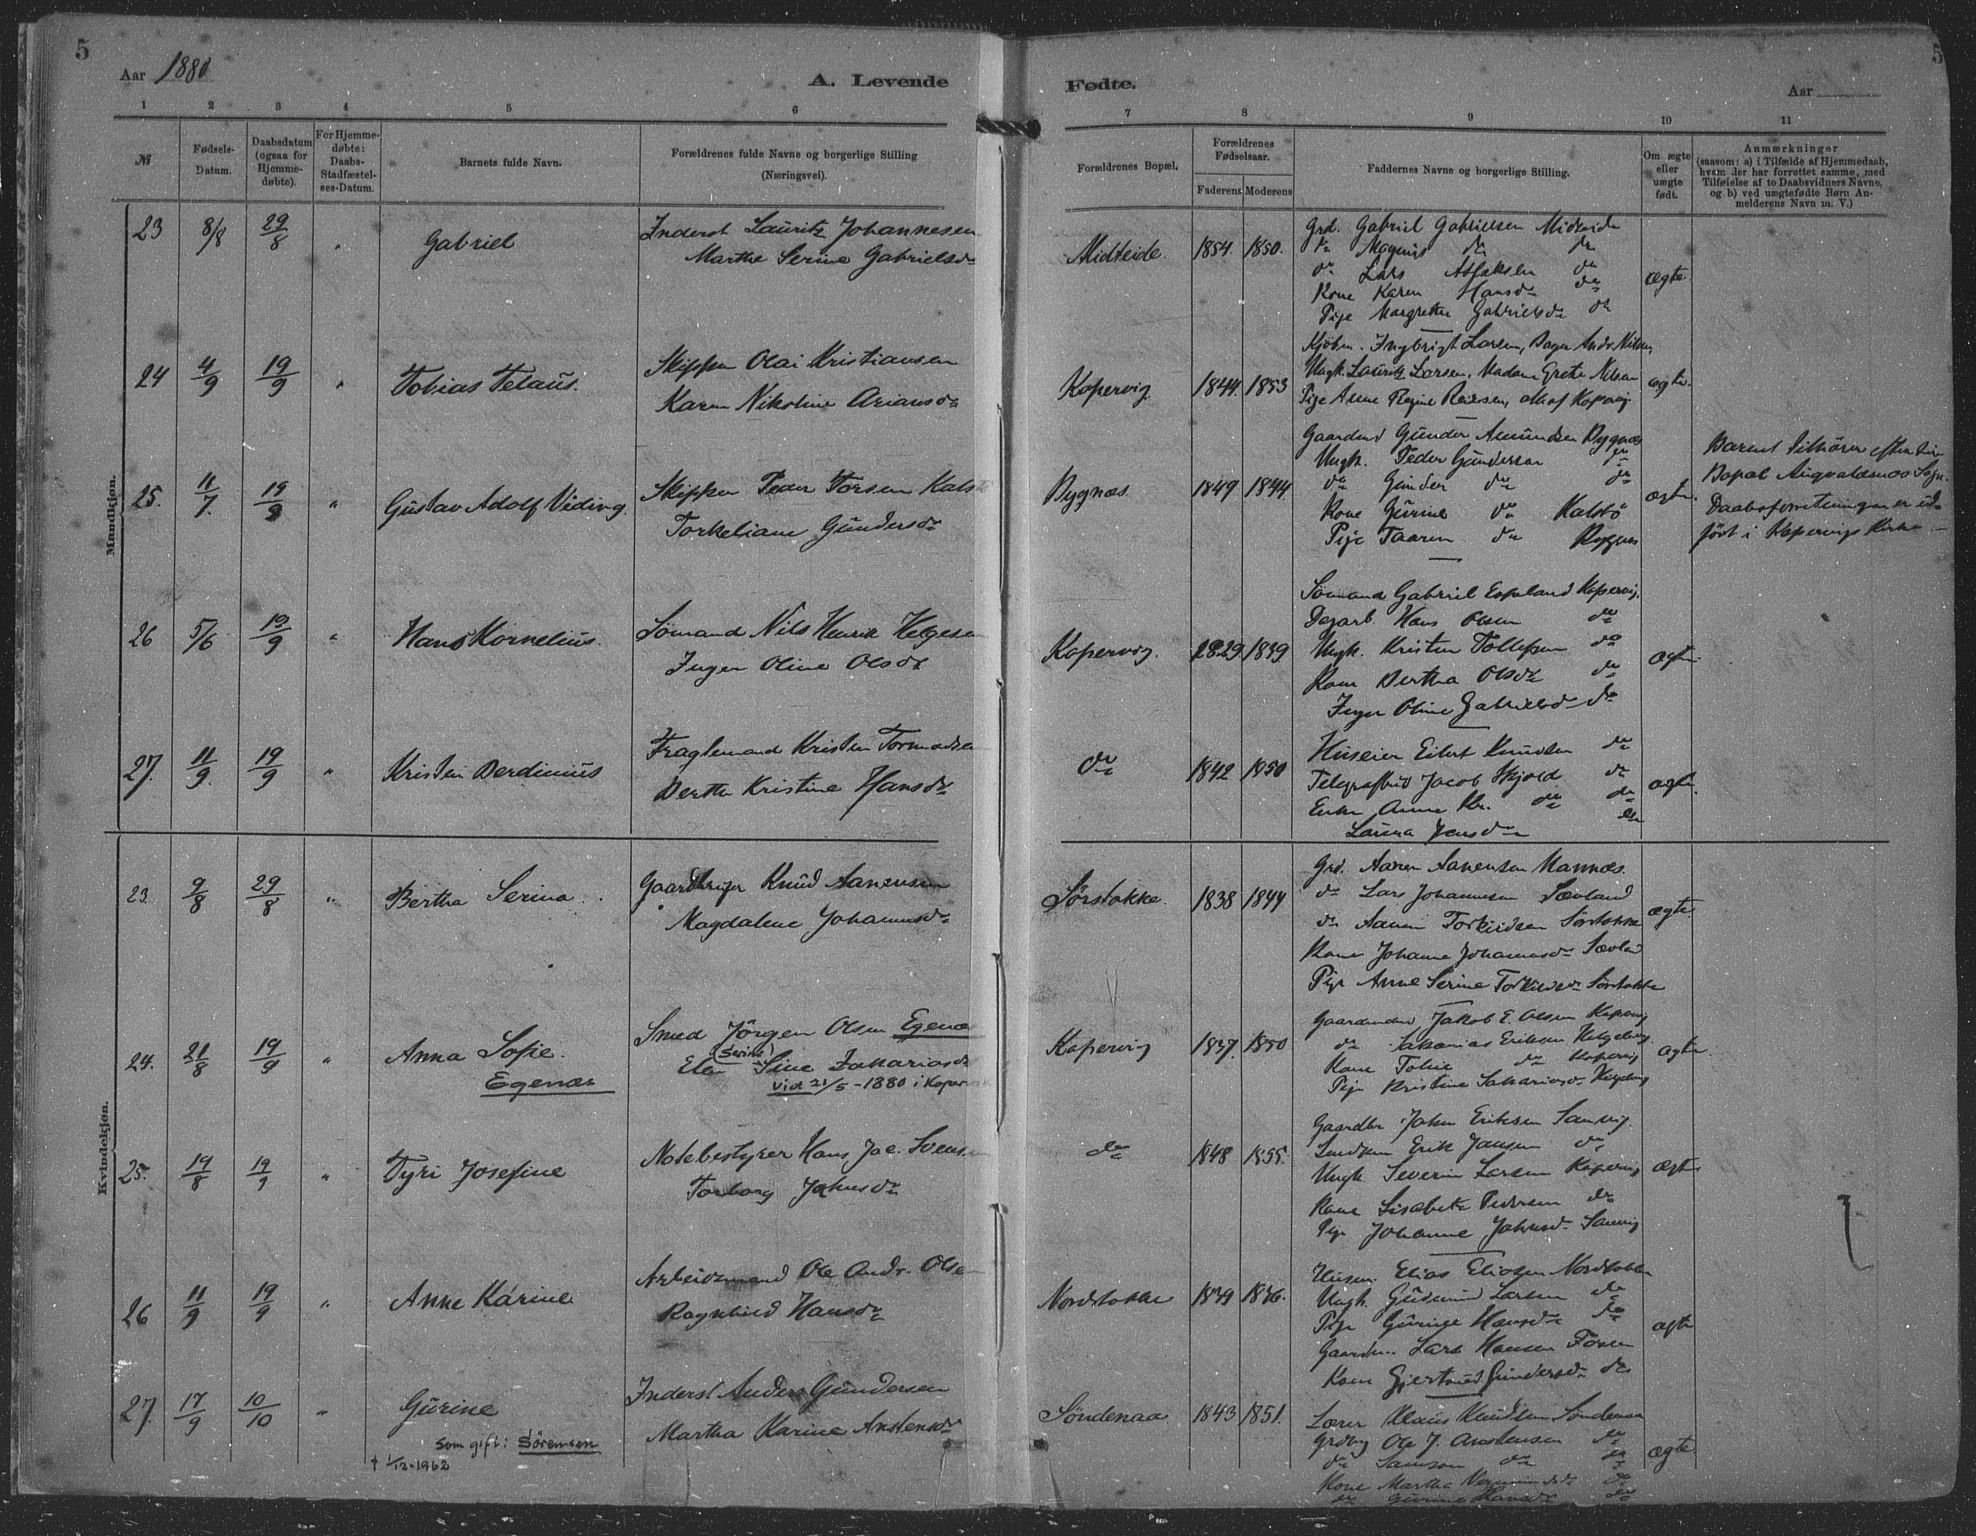 5
Aar 1880
A. Levende
Fødte.
Aar
5
1 2 3 4 5 6 7 8 9 10 11
№
Fødsels-
Datum.
Daabsdatum
(ogsaa for
Hjemme-
døbte).
For Hjemme-
døbte:
Daabs-
Stadfæstel-
ses-Datum.
Barnets fulde Navn.
Forældrenes fulde Navne og borgerlige Stilling
(Næringsvei).
Forældrenes Bopæl.
Forældrenes
Fødselsaar.
Faderens Moderens
Faddernes Navne og borgerlige Stilling.
Om ægte
eller
uægte
født.
Anmærkninger
(saasom: a) i Tilfælde af Hjemmedaab,
hvem der har forrettet samme, med
Tilføielse af to Daabsvidners Navne,
og b) ved uægtefødte Børn An-
melderens Navn m. V.)
Mandkjøn.
23 8/8 29/8 " Gabriel
Inderst Lauritz Johannesen
Martha Serine Gabrielsdr
Midteide. 1854. 1850.
Grd. Gabriel Gabrielsen Mideide
do Magnus do do
do Lars Aslaksen do
Kone Karen Hansdr do
Pige Margrethe Gabrielsdr do
ægte.
24 4/9 19/9 " Tobias Telaus.
Skipper Olai Kristiansen
Karen Nikoline Ariansdr
Kopervig. 1844. 1853
Kjøbm. Ingbrigt Larsen, Bager Andr. Nilsen,
Ungk. Lauritz Larsen, Madam Grete Nilsen
Pige Anne Regine Reiersen, alle af Kopervig
ægte.
25. 11/7. 19/9 " Gustav Adolf Viding.
Skipper Peder Torsen Kalstø
Torkeliane Gundersdr
Bygnæs. 1849 1844.
Gaardmd Gunder Amundsen Bygnæs
Ungk. Peder Gundersen do
do Gunder do do
Kone Gurine do Kalstø
Pige Taaren do Bygnes
ægte.
Barnet tilhører efter sin
Bopæl Augvaldsnes Sogn.
Daabsforretningen er ud-
ført i Kopervigs Kirke.
26 5/6 19/9 " Hans Kornelius.
Sømand Nils Henrik Helgesen
Inger Oline Olsdr
Kopervig. 1829 1839
Sømand Gabriel Espeland Kopervig.
Dagarb. Hans Olsen do
Ungk. Kristen Tollefsen do
Kone Bertha Olsdr do
Inger Oline Gabrielsdr do
ægte.
27. 11/9. 19/9 " Kristen Berdinius
Fragtemand Kristen Tormodsen
Berthe Kristine Hansdr
do 1842 1850
Huseier Eilert Knudsen do
Telegrafbud Jacob Skjold do
Enke Anna Kr. do do
Laura Jensdr do
ægte.
Kvindekjøn.
23. 9/8 29/8 " Bertha Serina.
Gaardbruger Knud Aanensen
Magdalene Johannesdr
Sørstokke. 1838 1844
Grd. Aanen Aanensen Mannæs.
do Lars Johannesen Sævland
do Aanen Torkildsen Sørstokke
Kone Johanne Johannesdr Sævland
Pige Anne Serine Torkildsdr Sørstokke
ægte
24. 21/8 19/9 " Anna Sofie.
Egenæs
Smed Jørgen Olsen Egenæs
(Serine)
Elen Sine Zakariasdr
Vid 21/5-1880 i Kopervik
Kopervig 1837. 1850
Gaardmand Jakob E. Olsen Kopervig
do Sakarias Eriksen
Kone Tobie do Kopervig
Pige Kristine Sakariasdr
ægte.
25. 19/8 19/9 " Tyri Josefine
Notebestyrer Hans Jac. Svensen
Torborg Johnsdr
do 1848 1855.
Gaardbr. John Eriksen Sanvig.
Erik Jansen do
Ungk Severin Larsen Kopervig
Kone Lisabeth Pedersen do
Pige Johanne Johnsdr Sanvig
ægte
26 11/9 19/9 " Anne Karine
Arbeidsmand Ole Andr. Olsen
Ragnhild Hansdr
Nordstokke 1849 1846.
Husm. Elias Eliasen Nordstokke
Ungk. Gudmund Larsen do
Pige Gurine Hansdr do
Gaardm. Lars Hansen
Kone Gjertrud Gundersdr do
ægte
27. 17/9 10/10 " Gurine
som gift: Sørensen
† 1/12-1962
Inderst Anders Gundersen
Martha Karine Anstensdr
Søndenaa 1843 1851.
Lærer Klaus Knudsen Søndenaa
Grdbrg Ole J. Anstensen do
do Samson do do
Kone Martha do
do Gurine Hansdr do
ægte